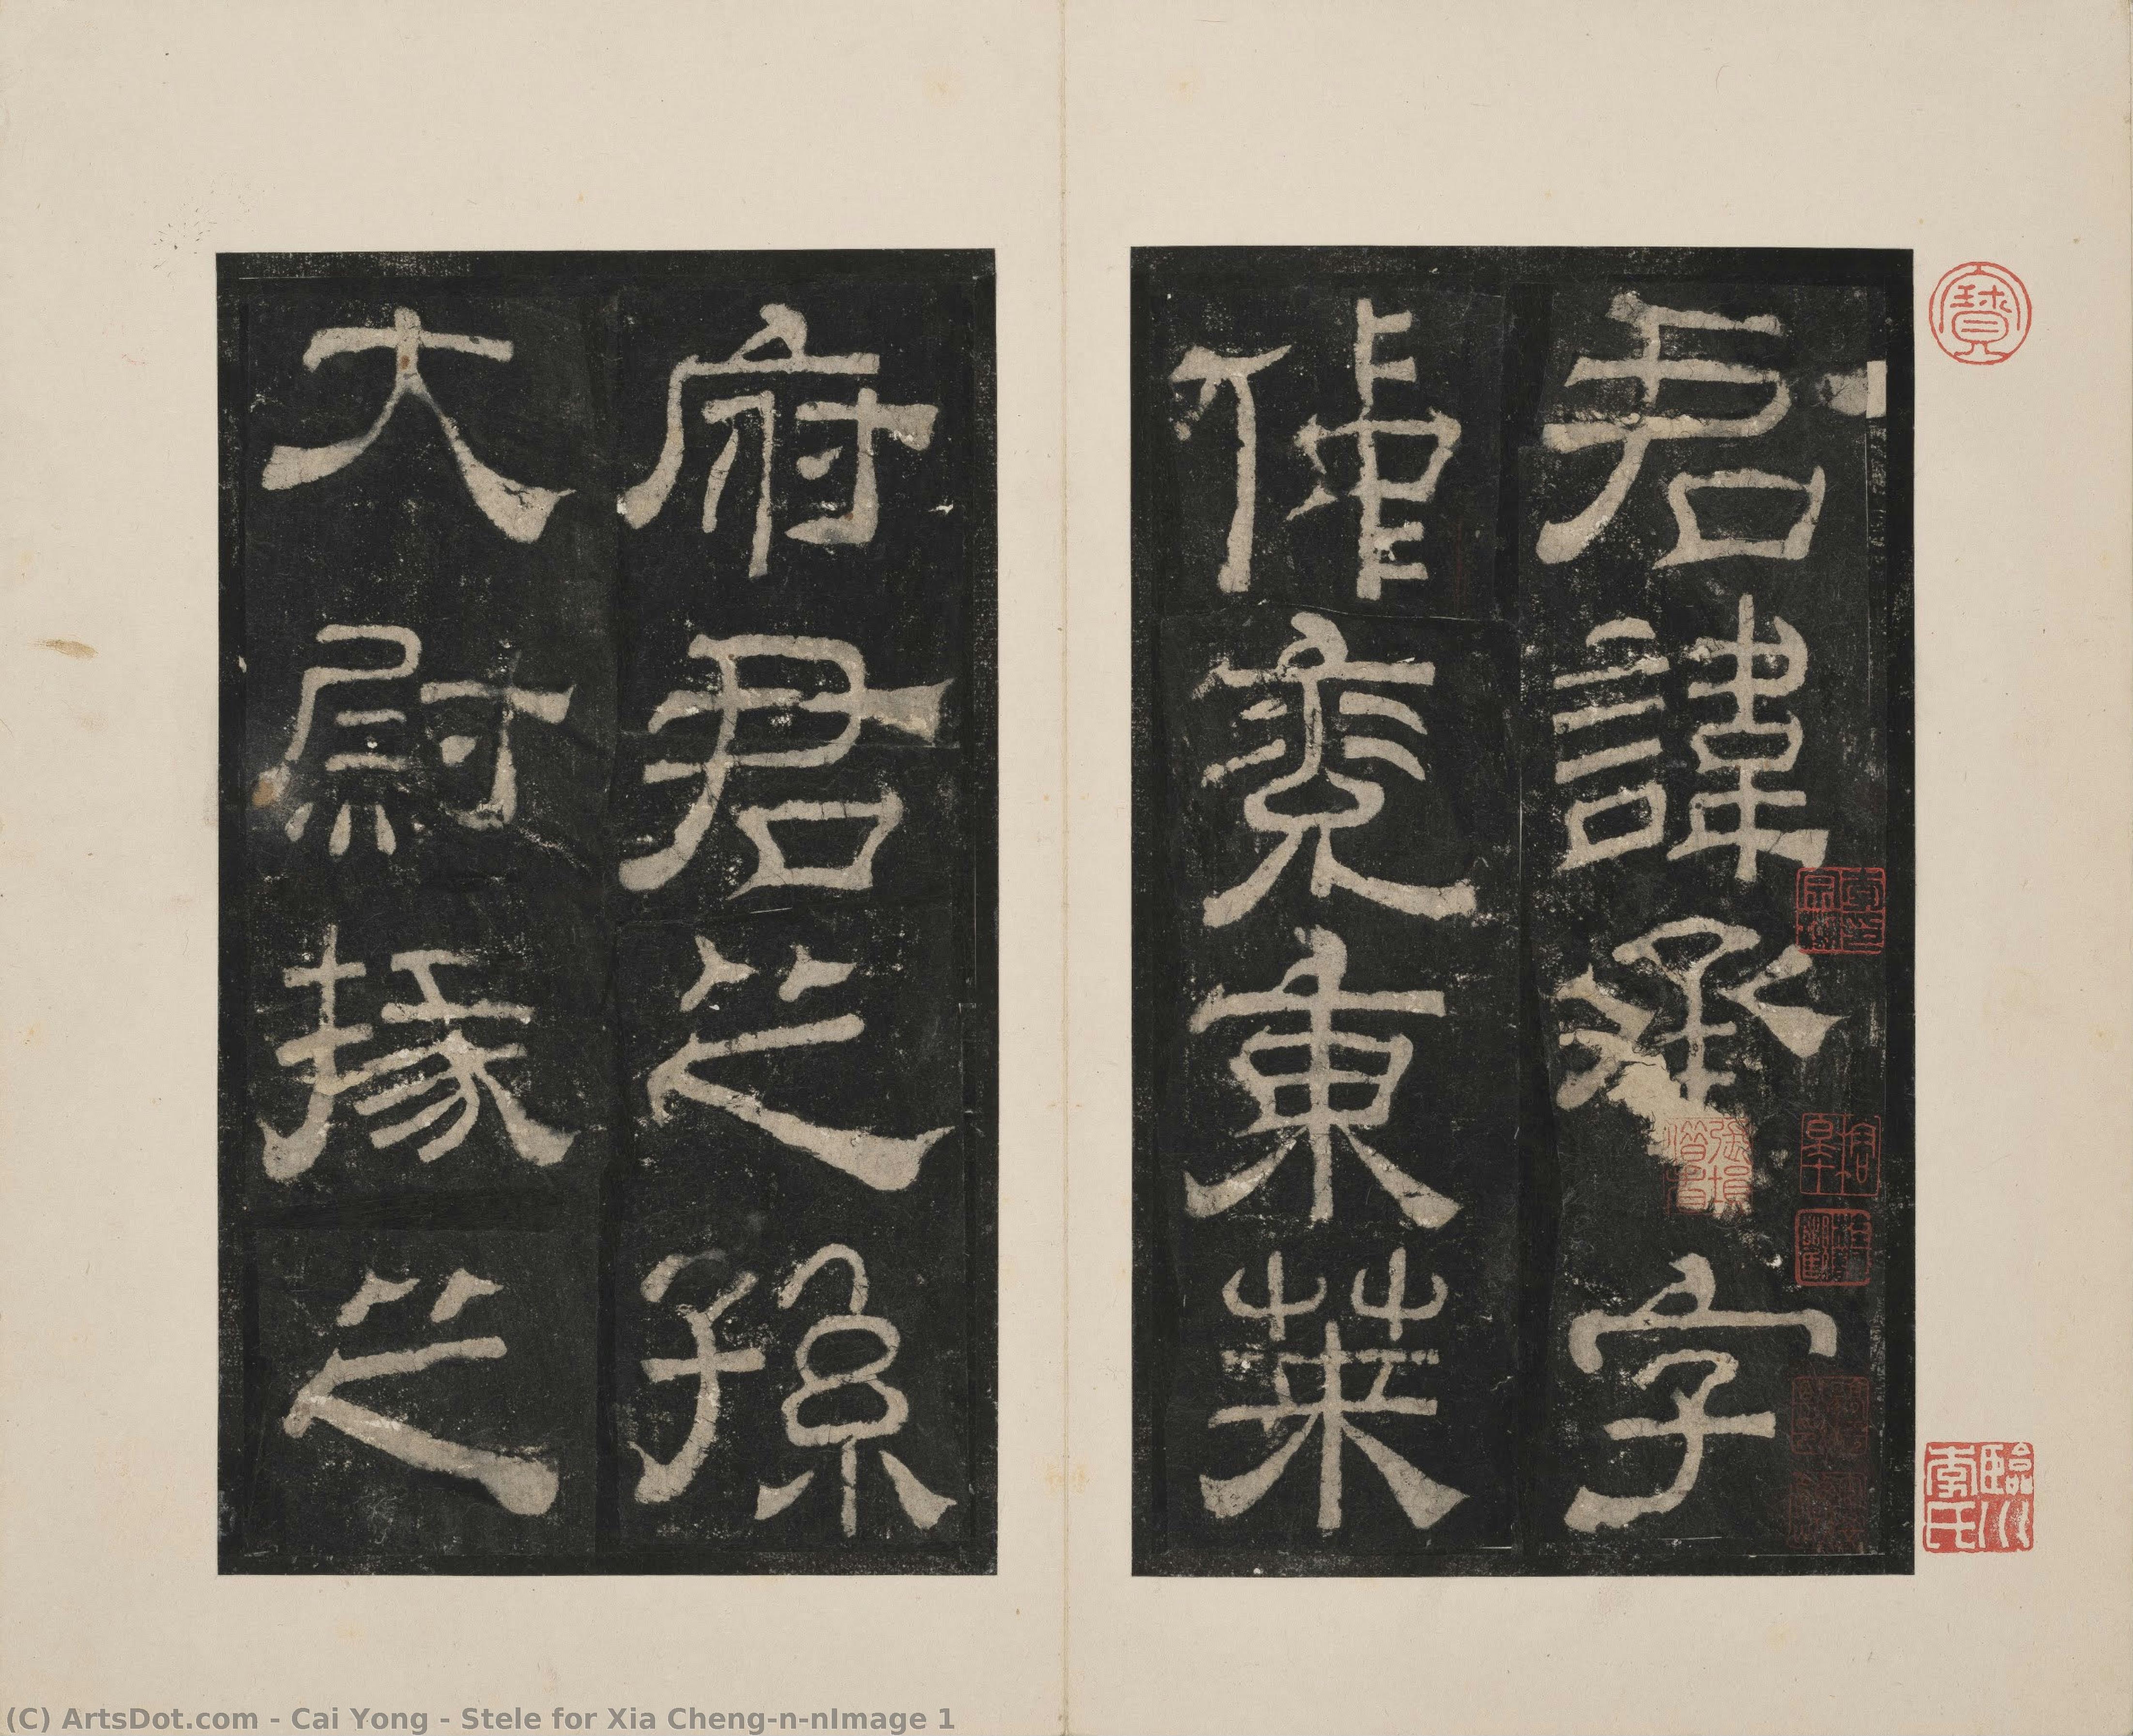 君諱承字
仲兖東萊
府君之孫
大尉掾之
寶
臨川李氏
(C) ArtsDot.com - Cai Yong - Stele for Xia Cheng-n-nImage 1